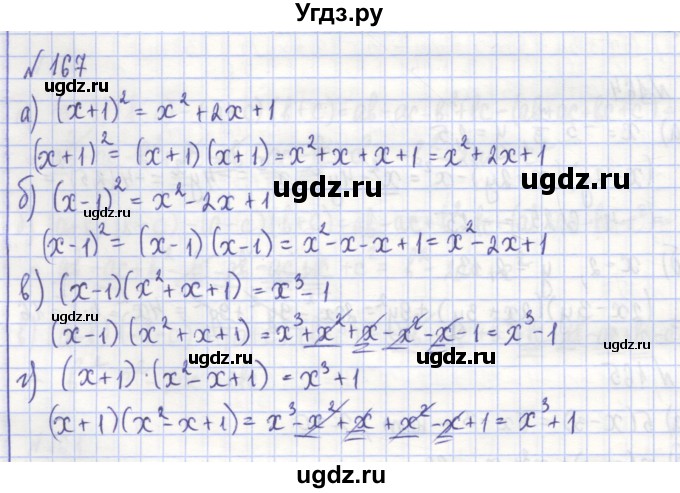 Угдз.ру
№ 167
ugdz.ru
а) (x+1)² = x² + 2x + 1
(x+1)² = (x+1)(x+1) = x² + x + x + 1 = x² + 2x + 1
ugdz.ru
б) (x-1)² = x² - 2x + 1
ugdz.ru
ugdz.ru
(x-1)² = (x-1)(x-1) = x² - x - x + 1 = x² - 2x + 1
в) (x-1)(x² + x + 1) = x³ - 1
ugdz.ru
(x-1)(x² + x + 1) = x³ + x² + x - x² - x - 1 = x³ - 1
ugdz.ru
ugdz.ru
ugdz.ru
г) (x+1)·(x² - x + 1) = x³ + 1
ugdz.ru
(x+1)(x² - x + 1) = x³ - x² + x + x² - x + 1 = x³ + 1
ugdz.ru
ugdz.ru